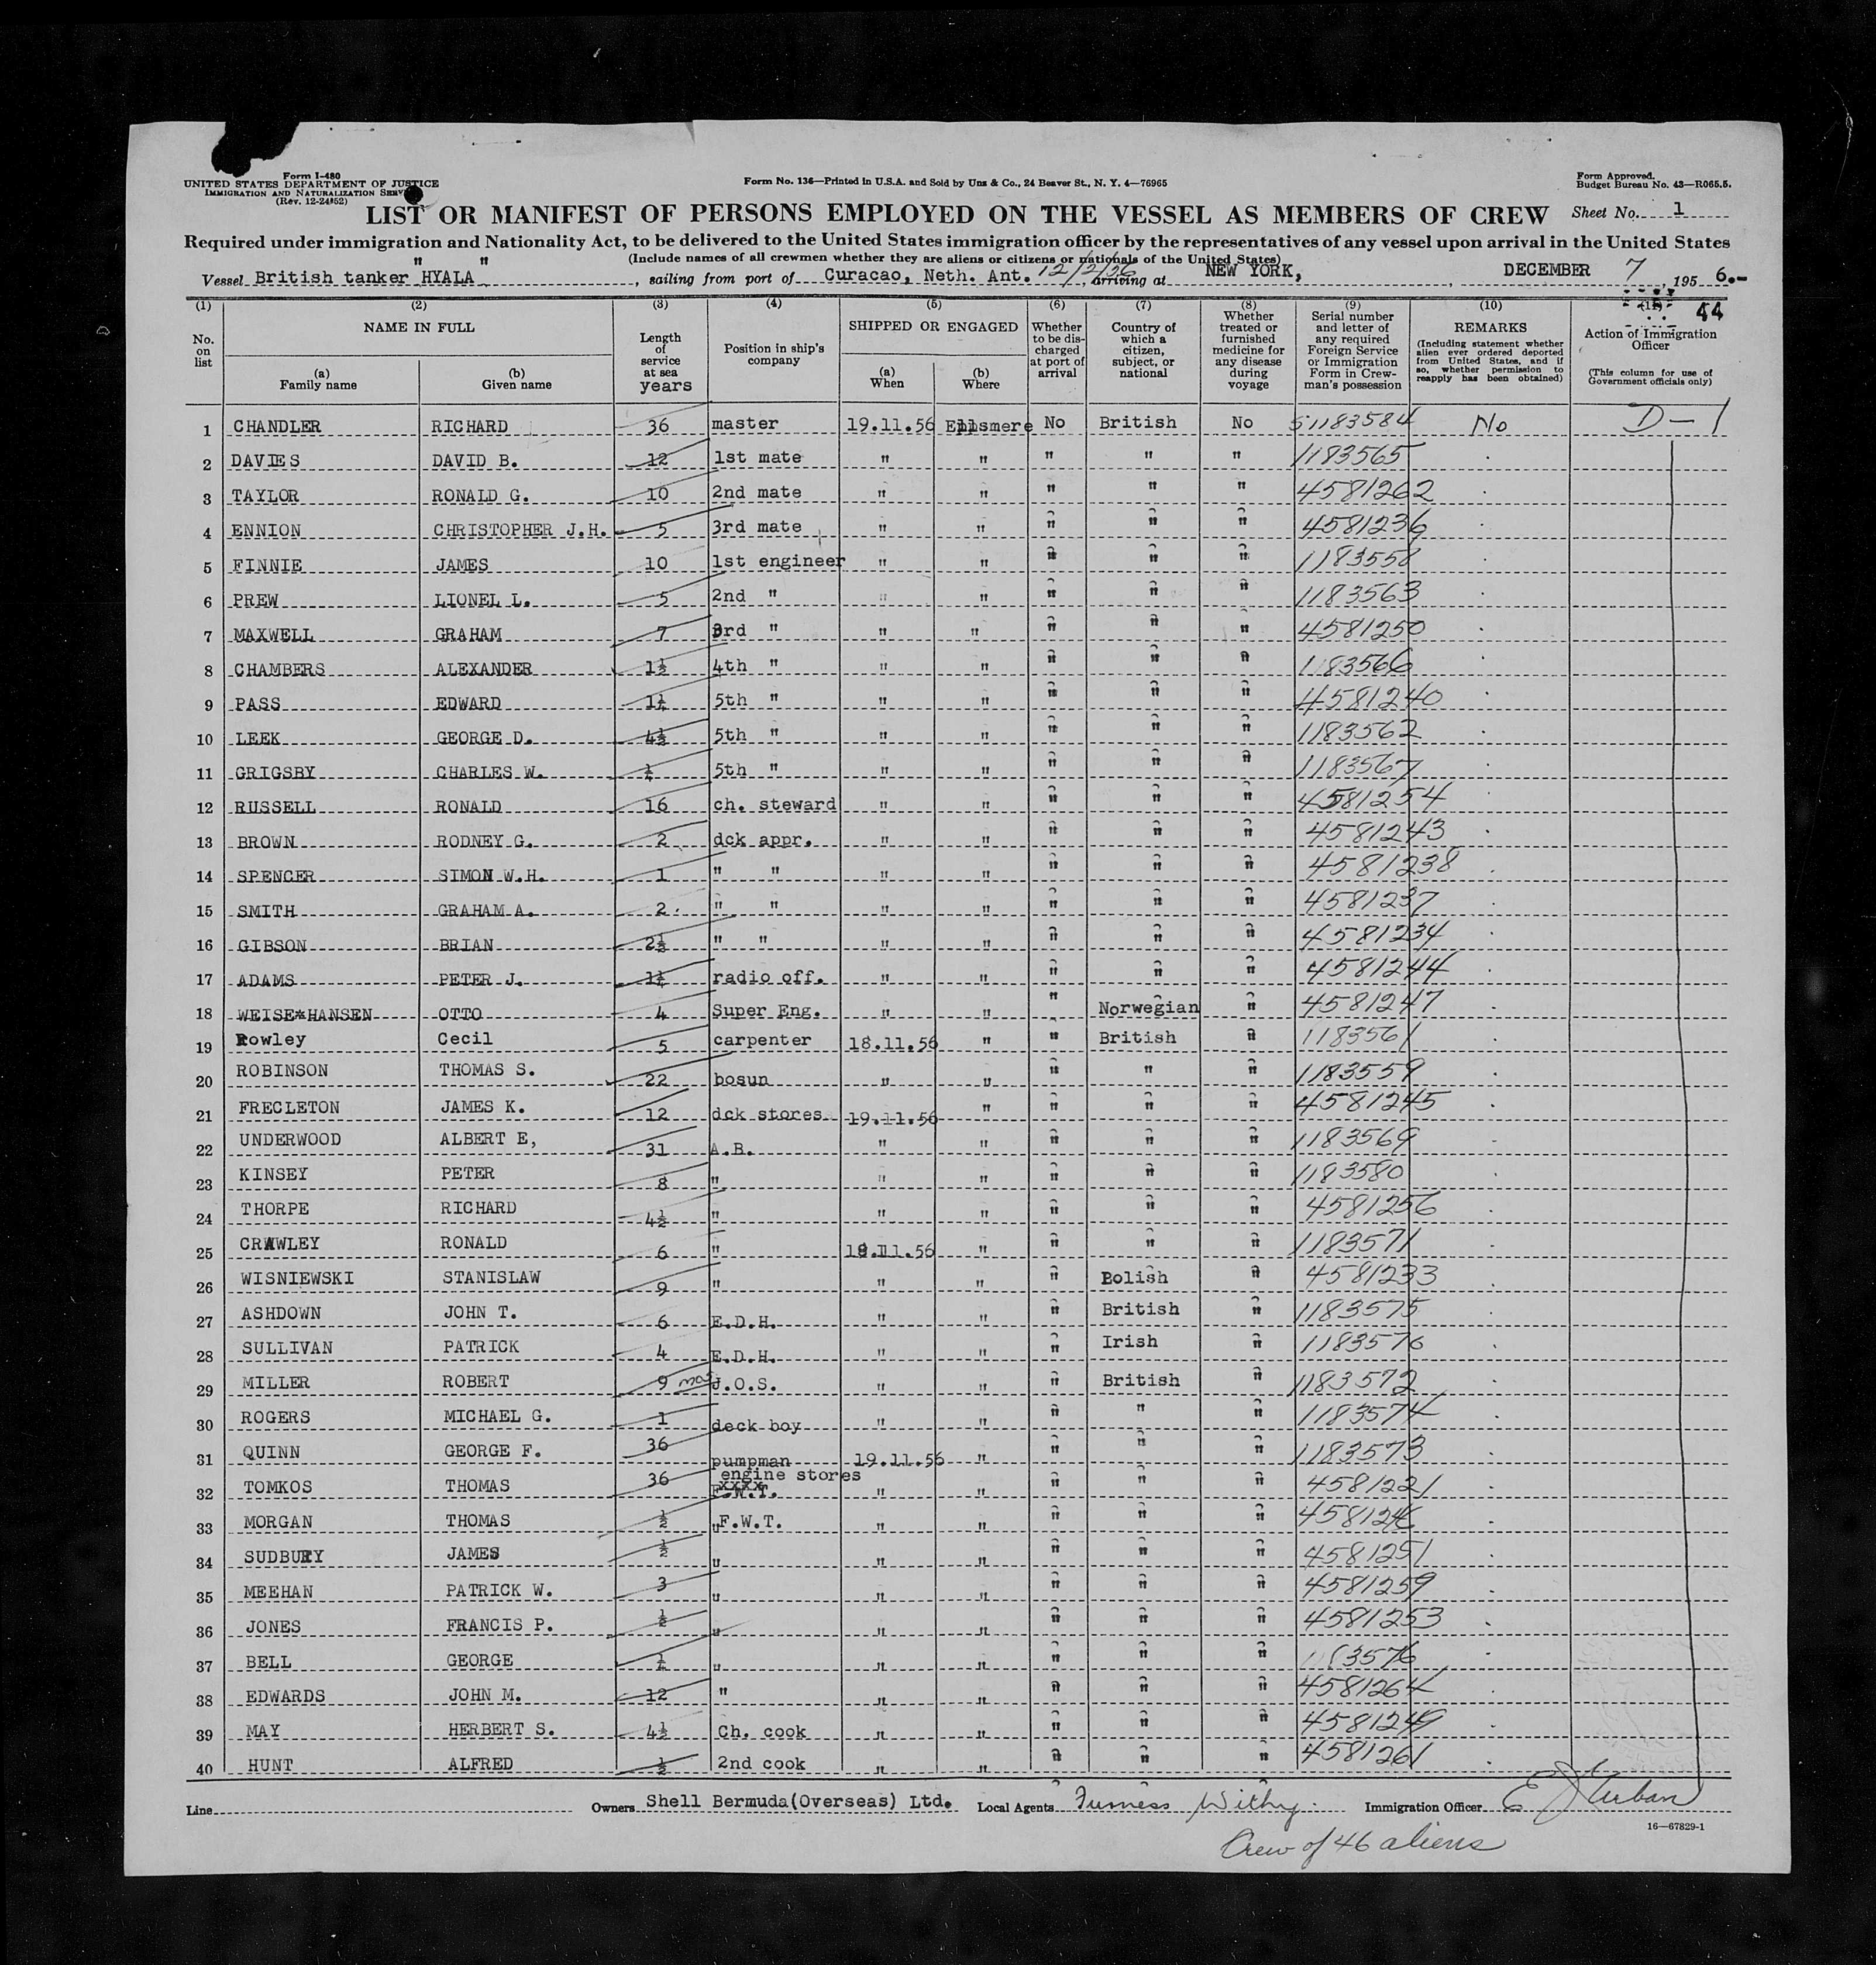 Form I-480
UNITED STATES DEPARTMENT OF JUSTICE
IMMIGRATION AND NATURALIZATION
(Rev. 12-24-52)
Form No. 136—Printed in U.S.A. and Sold by Unz & Co., 24 Beaver St., N. Y. 4—76965
Form Approved.
Budget Bureau No. 43—R065.5.
LIST OR MANIFEST OF PERSONS EMPLOYED ON THE VESSEL AS MEMBERS OF CREW Sheet No. 1
Required under immigration and Nationality Act, to be delivered to the United States immigration officer by the representatives of any vessel upon arrival in the United States
(Include names of all crewmen whether they are aliens or citizens or nationals of the United States)
Vessel British tanker "HYALA", sailing from port of Curacao, Neth. Ant. 12/2/56, arriving at NEW YORK, DECEMBER 7, 1956.-
(1) (2) (3) (4) (5) (6) (7) (8) (9) (10) (11) 44
No. on list
NAME IN FULL
(a) Family name
(b) Given name
Length of service at sea years
Position in ship's company
SHIPPED OR ENGAGED
(a) When
(b) Where
Whether to be discharged at port of arrival
Country of which a citizen, subject, or national
Whether treated or furnished medicine for any disease during voyage
Serial number and letter of any required Foreign Service or Immigration Form in Crewman's possession
REMARKS
(Including statement whether alien ever ordered deported from United States, and if so, whether permission to reapply has been obtained)
Action of Immigration Officer
(This column for use of Government officials only)
1 CHANDLER RICHARD 36 master 19.11.56 Ellesmere No British No 1183584 No D-1
2 DAVIES DAVID B. 12 1st mate " " " " " 1183565
3 TAYLOR RONALD G. 10 2nd mate " " " " " 4581262
4 ENNION CHRISTOPHER J.H. 5 3rd mate " " " " " 4581236
5 FINNIE JAMES 10 1st engineer " " " " " 1183558
6 PREW LIONEL L. 5 2nd " " " " " " 1183563
7 MAXWELL GRAHAM 7 3rd " " " " " " 4581250
8 CHAMBERS ALEXANDER 1½ 4th " " " " " " 1183566
9 PASS EDWARD 1¼ 5th " " " " " " 4581240
10 LEEK GEORGE D. 4½ 5th " " " " " " 1183562
11 GRIGSBY CHARLES W. ¼ 5th " " " " " " 1183567
12 RUSSELL RONALD 16 ch. steward " " " " " 4581254
13 BROWN RODNEY G. 2 dck appr. " " " " " 4581243
14 SPENCER SIMON W.H. 1 " " " " " " " 4581238
15 SMITH GRAHAM A. 2 " " " " " " " 4581237
16 GIBSON BRIAN 2½ " " " " " " " 4581234
17 ADAMS PETER J. 1¼ radio off. " " " " " 4581244
18 WEISE*HANSEN OTTO 4 Super Eng. " " " Norwegian " 4581247
19 Rowley Cecil 5 carpenter 18.11.56 " " British " 1183561
20 ROBINSON THOMAS S. 22 bosun " " " " " 1183559
21 FRECLETON JAMES K. 12 dck stores 19.11.56 " " " " 4581245
22 UNDERWOOD ALBERT E, 31 A.B. " " " " " 1183569
23 KINSEY PETER 8 " " " " " " 1183580
24 THORPE RICHARD 4½ " " " " " " 4581256
25 CRAWLEY RONALD 6 " .11.56 " " " " 1183571
26 WISNIEWSKI STANISLAW 9 " " " " Polish " 4581233
27 ASHDOWN JOHN T. 6 E.D.H. " " " British " 1183575
28 SULLIVAN PATRICK 4 E.D.H. " " " Irish " 1183576
29 MILLER ROBERT 9 mos J.O.S. " " " British " 1183572
30 ROGERS MICHAEL G. 1 deck boy " " " " " 1183574
31 QUINN GEORGE F. 36 pumpman 19.11.56 " " " " 1183573
32 TOMKOS THOMAS 36 engine stores xxxx F.W.T. " " " " " 4581221
33 MORGAN THOMAS ½ "F.W.T. " " " " " 4581246
34 SUDBURY JAMES ½ " " " " " " 4581251
35 MEEHAN PATRICK W. 3 " " " " " " 4581259
36 JONES FRANCIS P. ½ " " " " " " 4581253
37 BELL GEORGE ¼ " " " " " "
38 EDWARDS JOHN M. 12 " " " " " " 4581264
39 MAY HERBERT S. 4½ Ch. cook " " " " " 4581249
40 HUNT ALFRED ½ 2nd cook " " " " " 4581261
Line Owners Shell Bermuda(Overseas) Ltd. Local Agents Furness Withy. Immigration Officer E J Urban
16—67829-1
Crew of 46 aliens